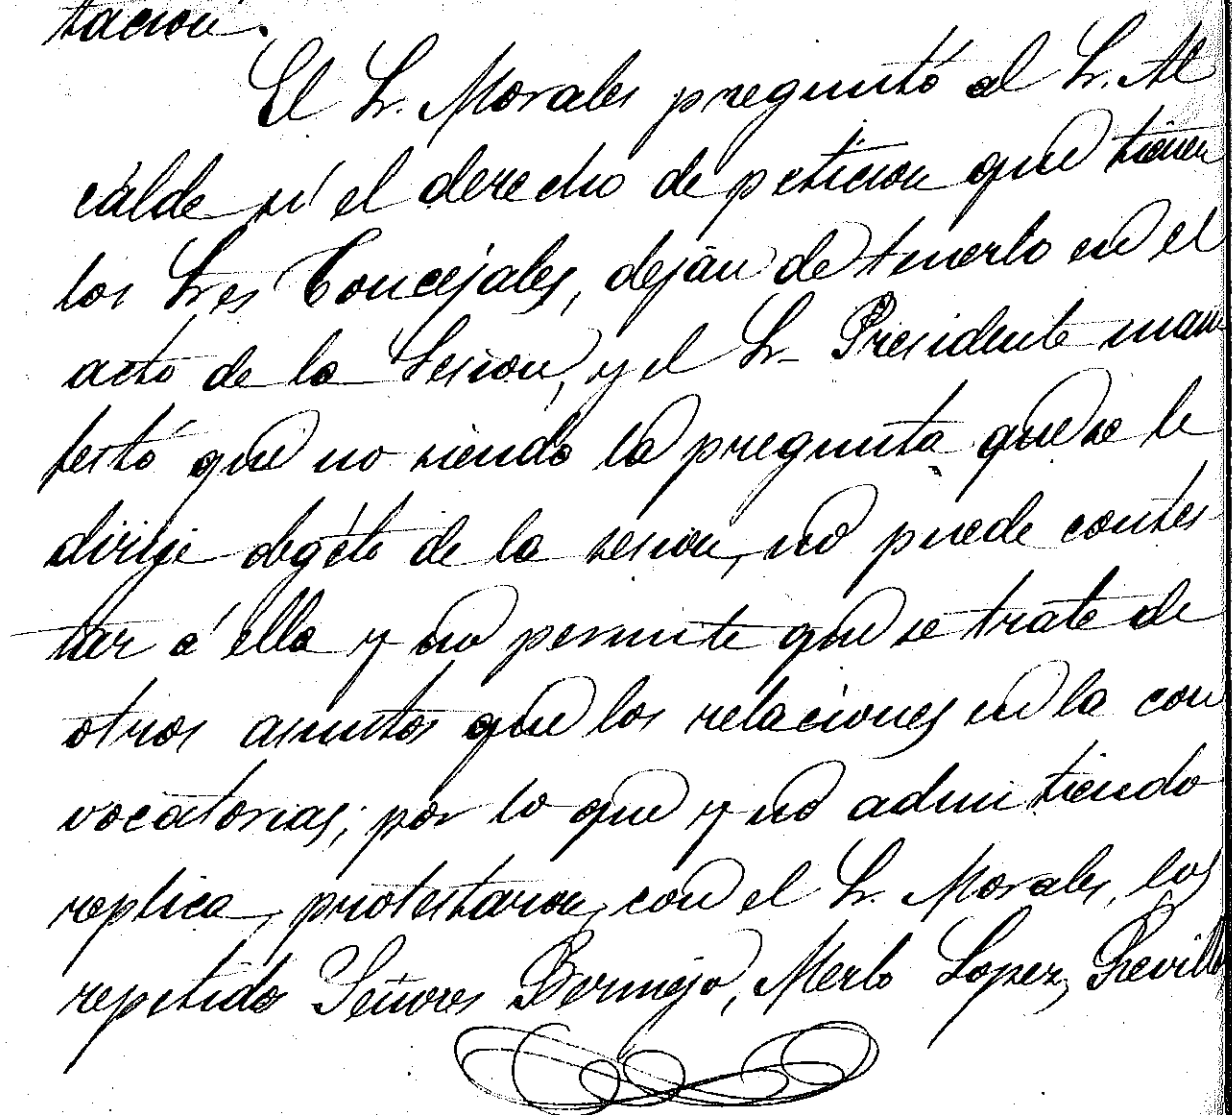 tacion.
El Sr. Morales preguntó al Sr. Al
calde si el derecho de peticion que tienen
los Sres Concejales, dejan de tenerlo en el
acto de la Sesion, y el Sr. Presidente mani
festó que no siendo la pregunta que se le
dirije obgeto de la sesion, no puede contes
tar á ella y no permite que se trate de
otros asuntos que los relaciones en la con
vocatorias; por lo que y no admitiendo
replica, protestaron, con el Sr. Morales, los
repetidos Señores Bermejo, Merlo Lopez,